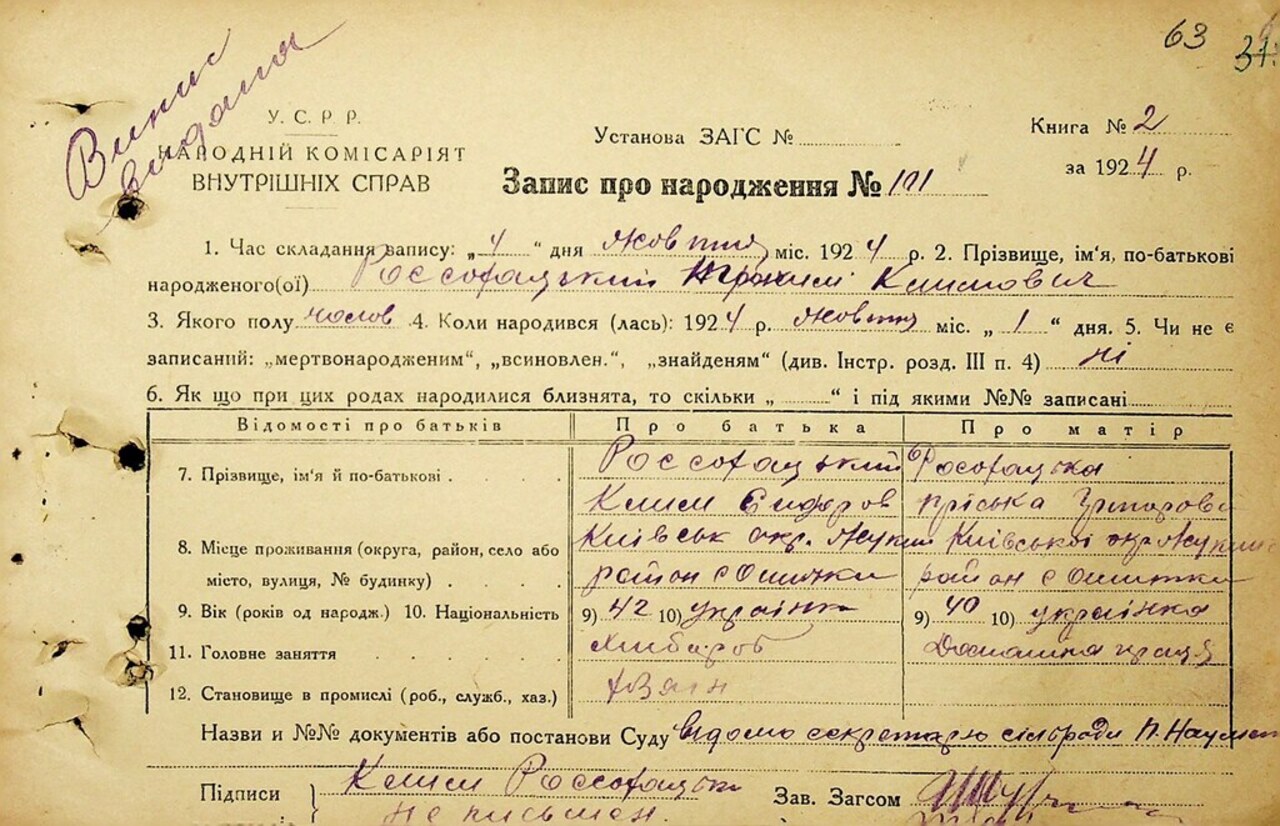 63
31
Випис
видана
У. С. Р. Р.
НАРОДНІЙ КОМІСАРІЯТ
ВНУТРІШНІХ СПРАВ
Установа ЗАГС №
Книга № 2
за 1924 р.
Запис про народження № 101
1. Час складання запису: „4“ дня Жовтня міс. 1924 р. 2. Прізвище, ім'я, по-батькові
народженого(ої) Россофацький Климович
3. Якого полу чолов. 4. Коли народився (лась): 1924 р. жовтня міс. „1“ дня. 5. Чи не є
записаний: „мертвонародженим“, „всиновлен.“, „знайденям“ (див. Інстр. розд. III п. 4) ні
6. Як що при цих родах народилися близнята, то скільки „ “ і під якими №№ записані
Відомості про батьків Про батька Про матір
7. Прізвище, ім'я й по-батькові Россофацький Рософацька
Клим Сидоров Пріська
8. Місце проживання (округа, район, село або Київськ окр. Київської окр
місто, вулиця, № будинку) район с Ошитки район с Ошитки
9. Вік (років од народж.) 10. Національність 9) 42 10) українка 9) 40 10) українка
11. Головне заняття Хлібороб Домашня праця
12. Становище в промислі (роб., служб., хаз.)
Назви и №№ документів або постанови Суду Відомо секретарю сільради П.
Підписи Клим Россофацький
Не письмен.
Зав. Загсом